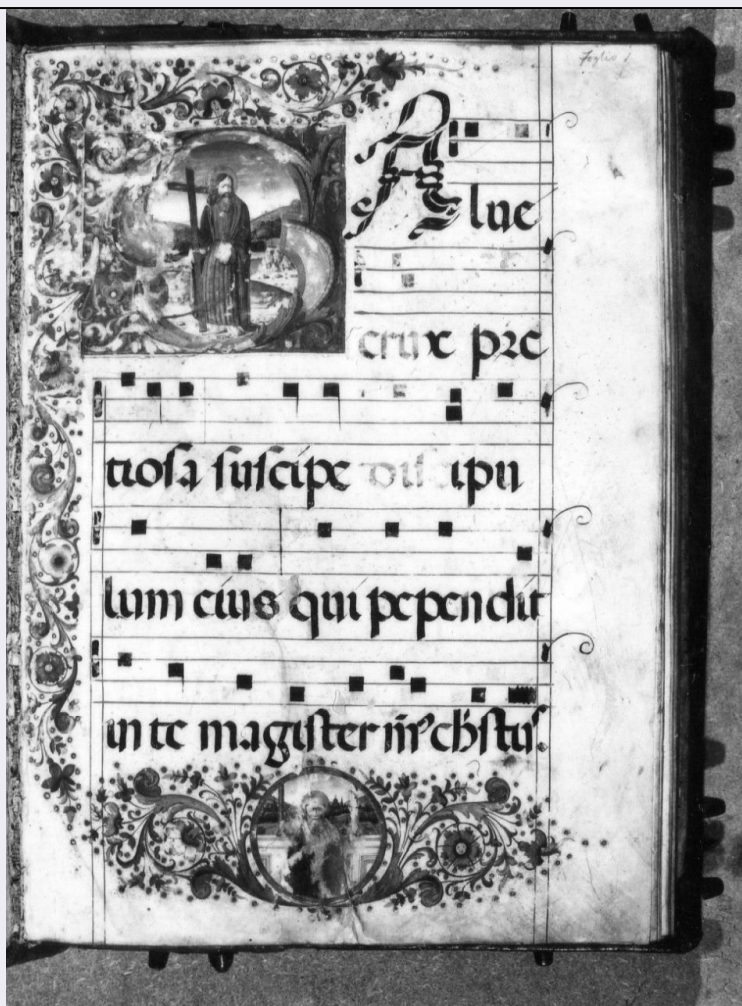 Foglio 1
SAlue
crux pre
tiosa suscipe discipu
lum eius qui pependit
in te magister nr̄ chr̄stus.